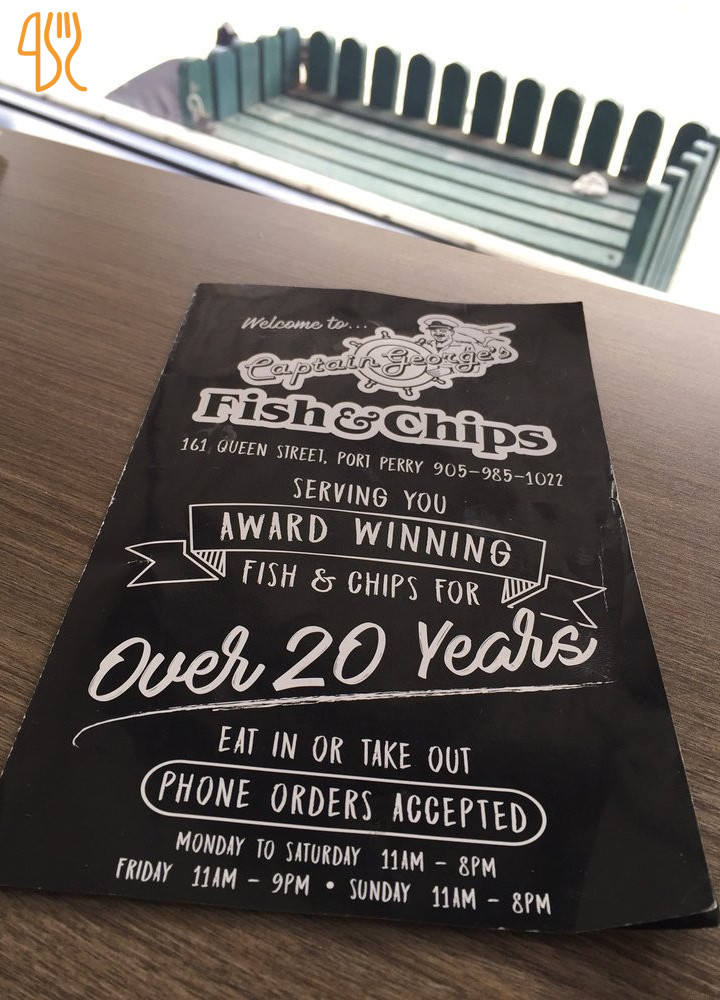 Welcome to...
Captain George's
Fish & Chips
161 QUEEN STREET, PORT PERRY 905-985-1022
SERVING YOU
AWARD WINNING
FISH & CHIPS FOR
Over 20 Years
EAT IN OR TAKE OUT
PHONE ORDERS ACCEPTED
MONDAY TO SATURDAY 11AM - 8PM
FRIDAY 11AM - 9PM • SUNDAY 11AM - 8PM